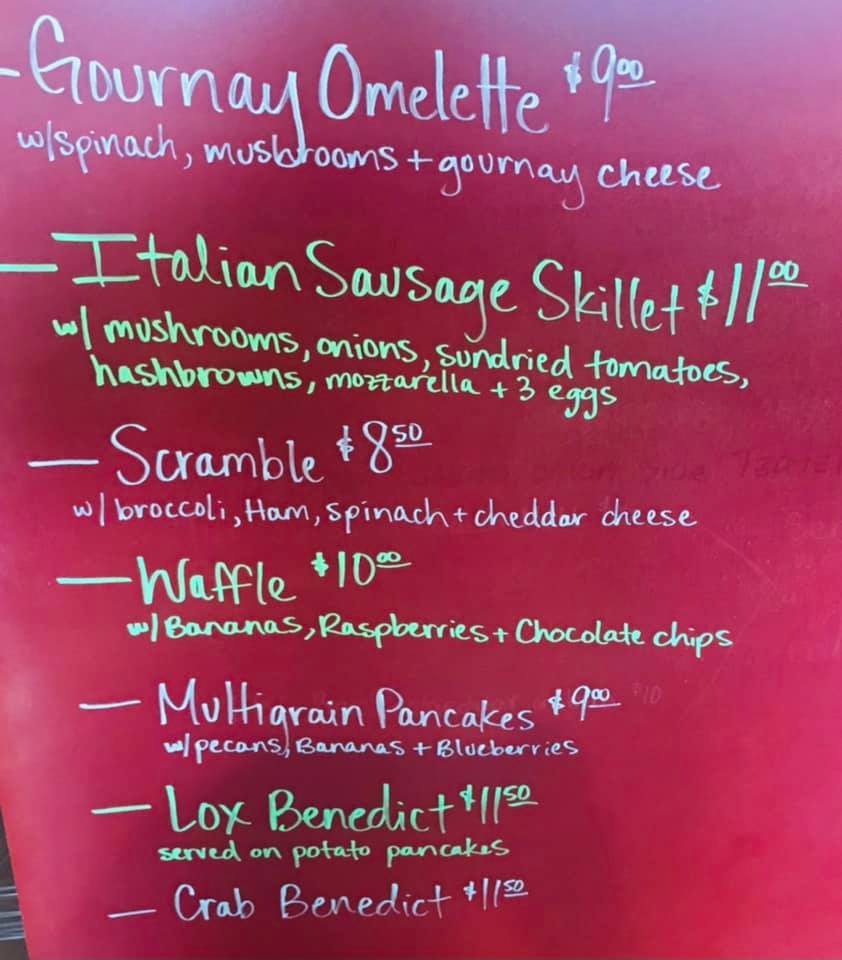 - Gournay Omelette $9.00
w/spinach, mushrooms + gournay cheese
- Italian Sausage Skillet $11.00
w/ mushrooms, onions, sundried tomatoes,
hashbrowns, mozzarella + 3 eggs
- Scramble $8.50
w/ broccoli, Ham, spinach + cheddar cheese
- Waffle $10.00
w/ Bananas, Raspberries + Chocolate chips
- Multigrain Pancakes $9.00
w/pecans, Bananas + Blueberries
- Lox Benedict $11.50
served on potato pancakes
- Crab Benedict $11.50